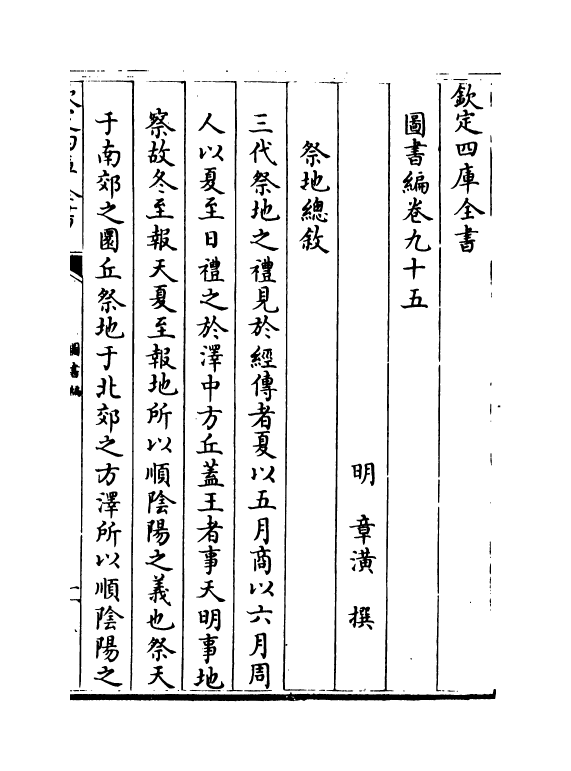 欽定四庫全書
圖書編卷九十五
明 章潢 撰
祭地總敘
三代祭地之禮見於經傳者夏以五月商以六月周
人以夏至日禮之於澤中方丘蓋王者事天明事地
察故冬至報天夏至報地所以順陰陽之義也祭天
于南郊之圜丘祭地于北郊之方澤所以順陰陽之
圖書編